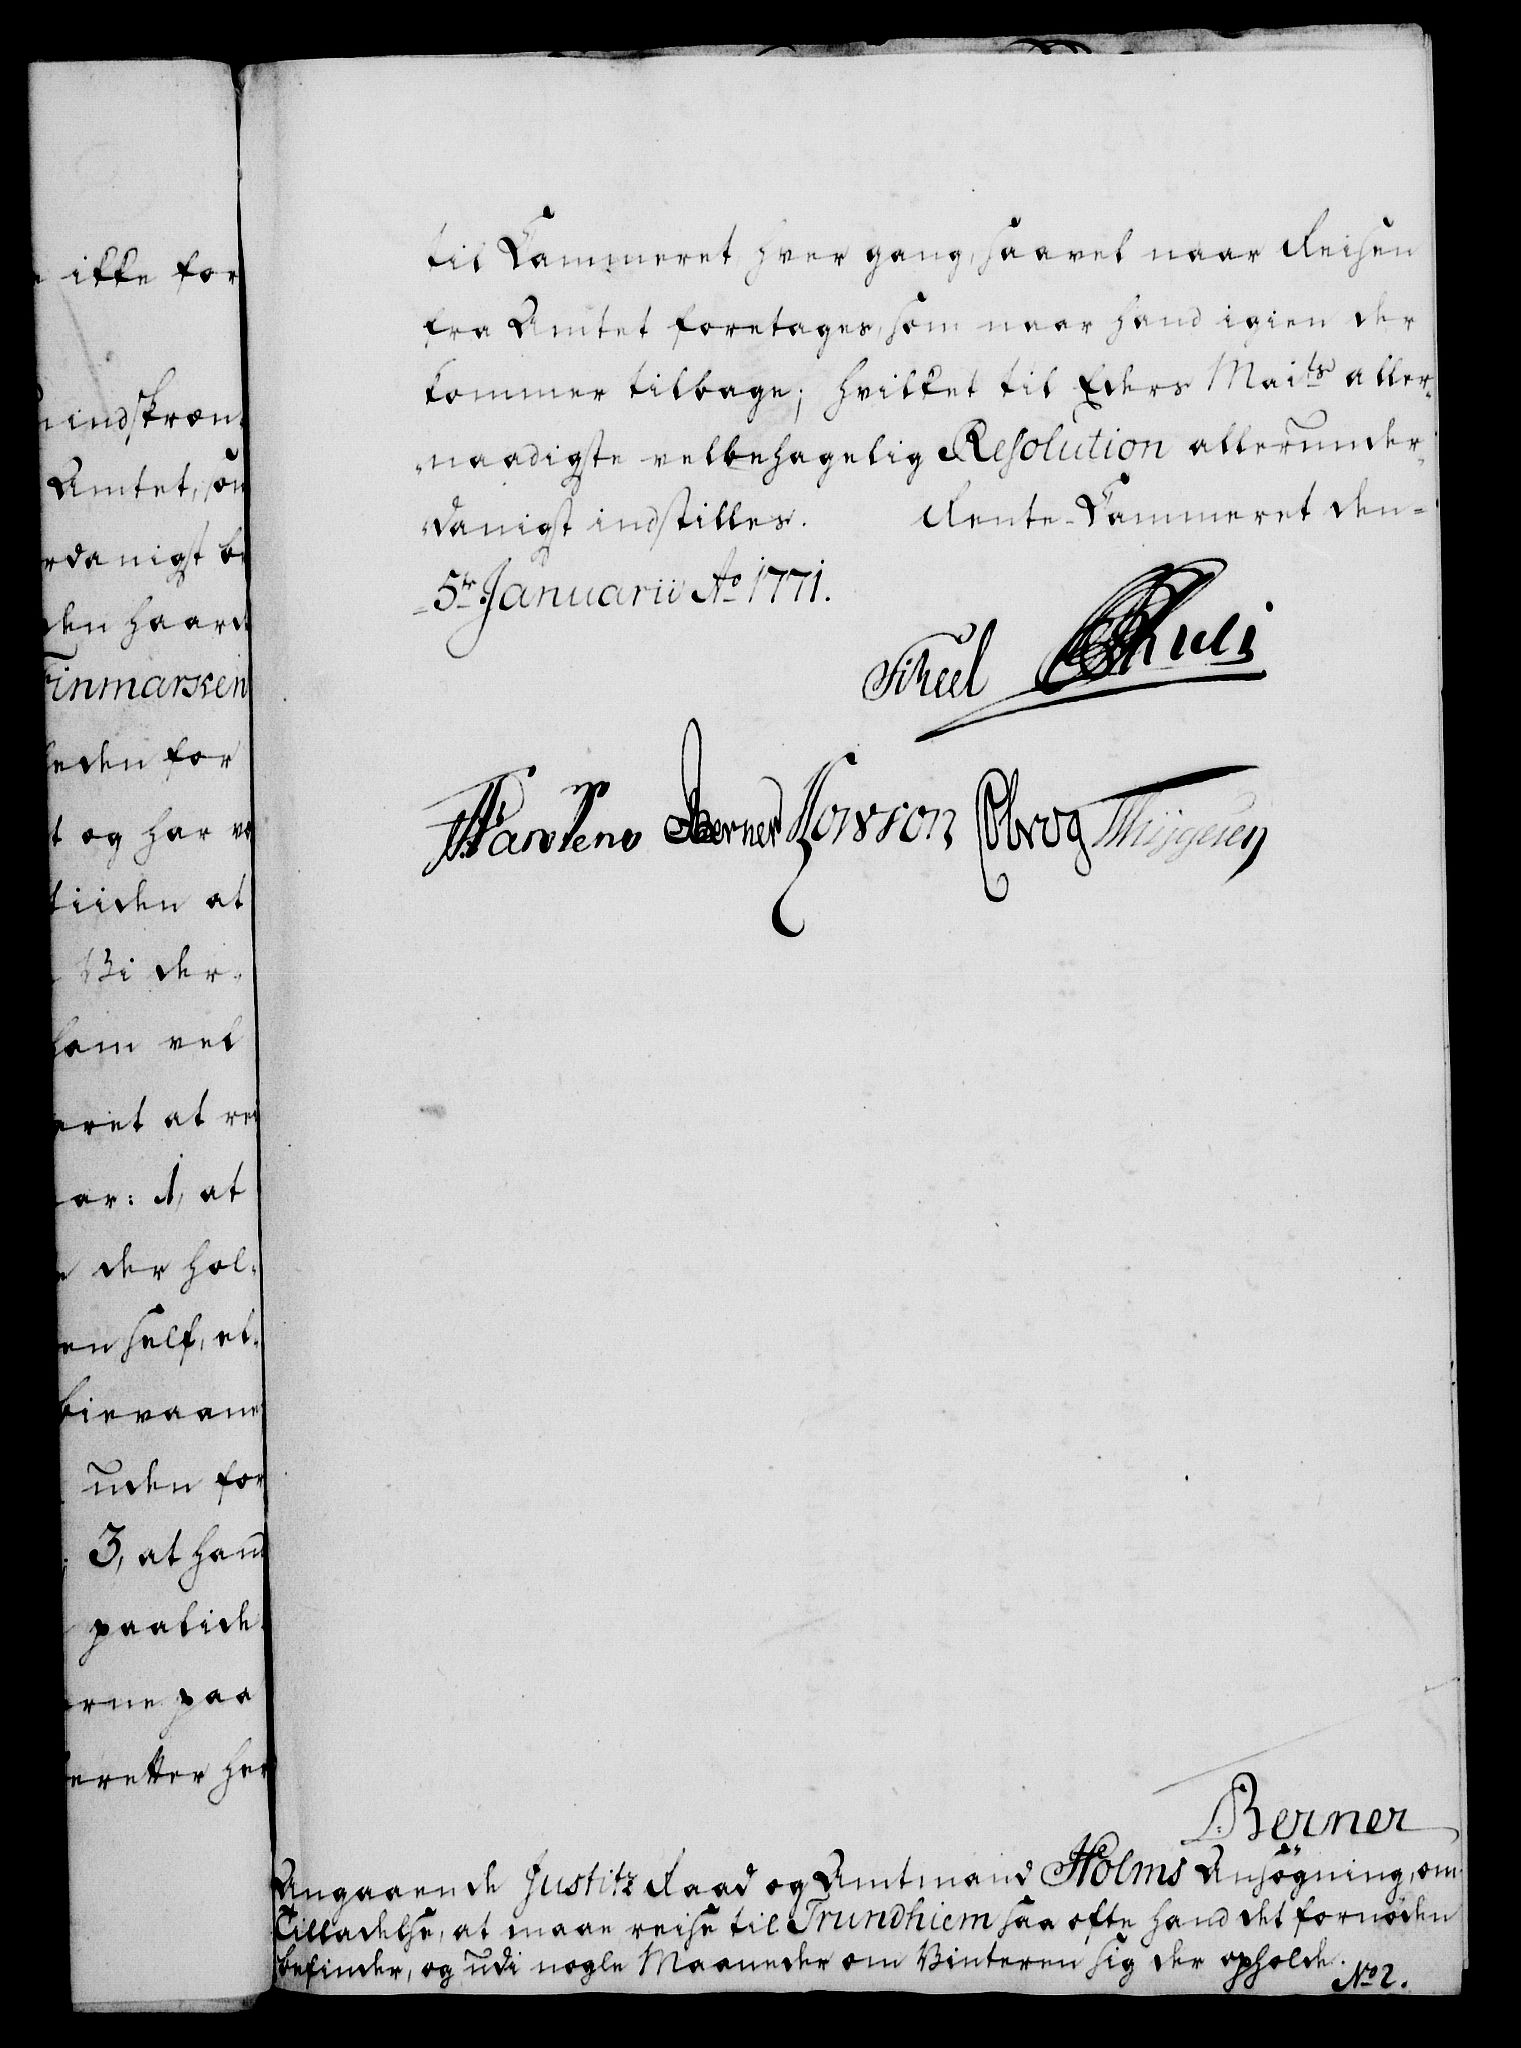 ikke for
indskræn-
Amtet, son
rdanigst be
den haard
Finmarken
heden for
t og har vo
tiiden at
Vi der-
ham vel
eret at rei
ar: 1, at
der hol-
en self, el-
bievaane
uden for
3, at hand
paalide-
erne paa
eretter her
til Cammeret hver gang, saavel naar Reisen
fra Amtet foretages, som naar hand igien der
kommer tilbage; hvilket til Eders Maits aller-
naadigste velbehagelig Resolution allerunder-
danigst indstilles. Rente-Cammeret den-
5te Januarii Ao 1771.
Scheel
Berner Cobrog
Berner
Angaaende Justitz Raad og Amtmand Holms Ansøgning, om
Tilladelse, at maae reise til Trundhiem saa ofte hand det fornøden
befinder, og udi nogle Maaneder om Vinteren sig der opholde.
No 2.